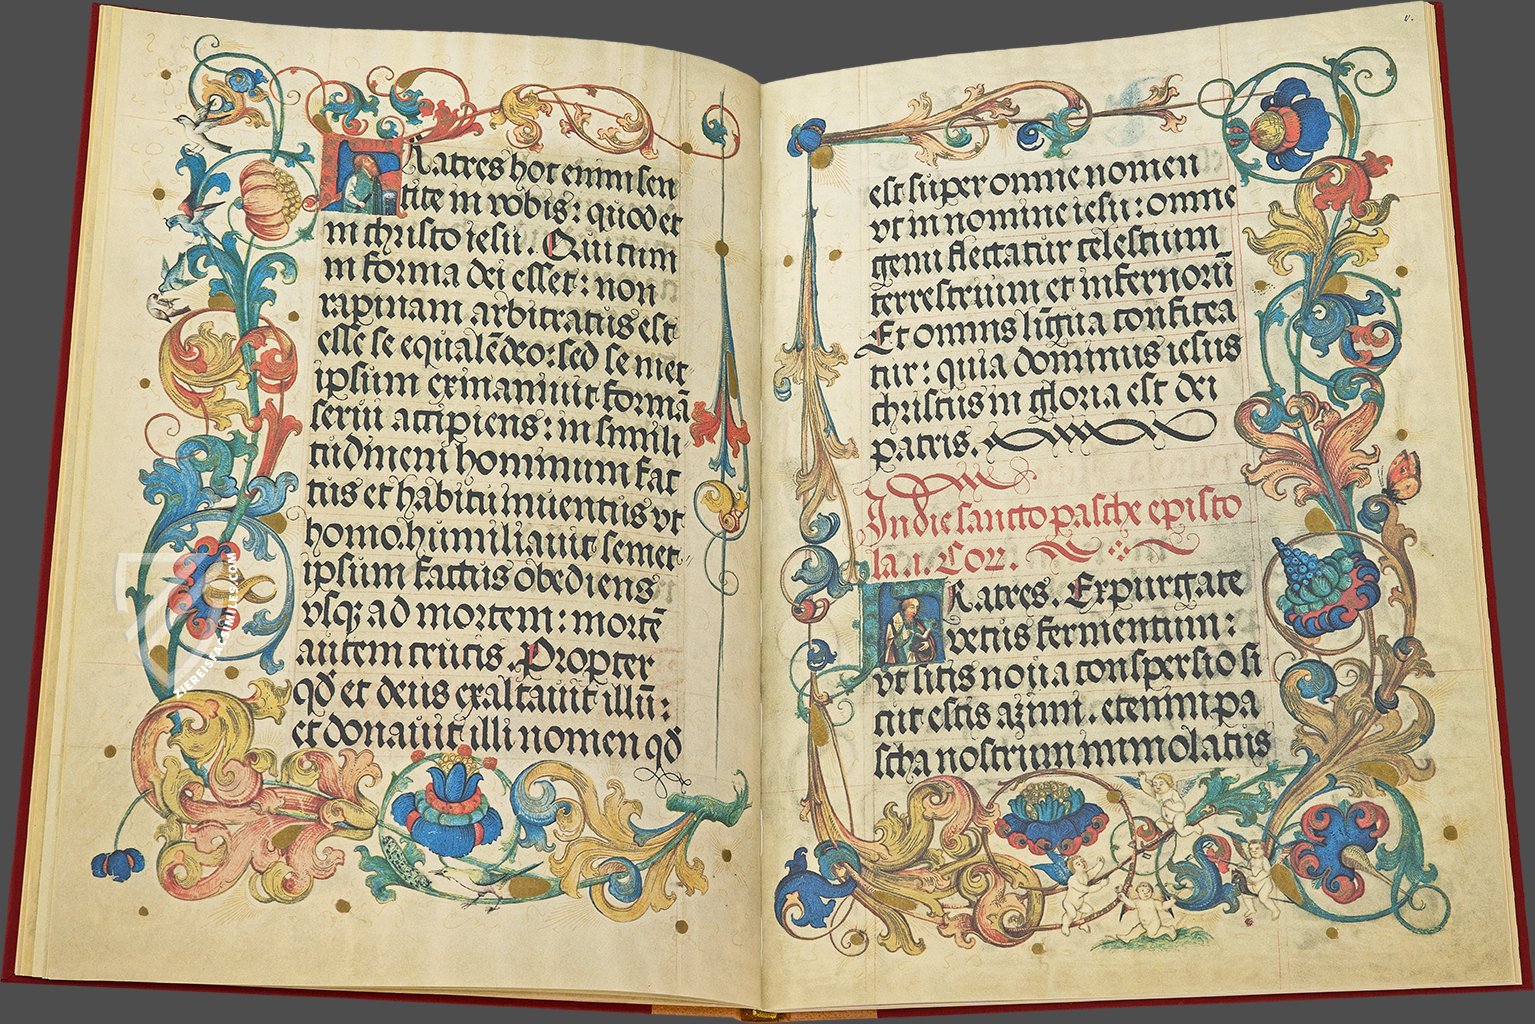 Fratres hoc enim sen
tite in vobis: quod et
in christo iesu. Qui cum
in forma dei esset: non
rapinam arbitratus est
esse se equalē deo: sed se met
ipsum exinanivit formā
servi accipiens: in simili
tudinem hominum fac
tus et habitu inventus vt
homo. humiliavit semet
ipsum factus obediens
vsq; ad mortem: mortē
autem crucis. Propter
qd et deus exaltavit illū:
et donavit illi nomen qd
v.
est super omne nomen
vt in nomine iesu: omne
genu flectatur celestium
terrestrium et infernorū
Et omnis līgua confitea
tur: quia dominus iesus
christus in gloria est dei
patris.
In die sancto pasche episto
la .1. Cor.
Fratres. Expurgate
vetus fermentum:
vt sitis nova conspersio si
cut estis azimi. etenim pa
scha nostrum immolatus
ZIEREIS FACSIMILES.COM